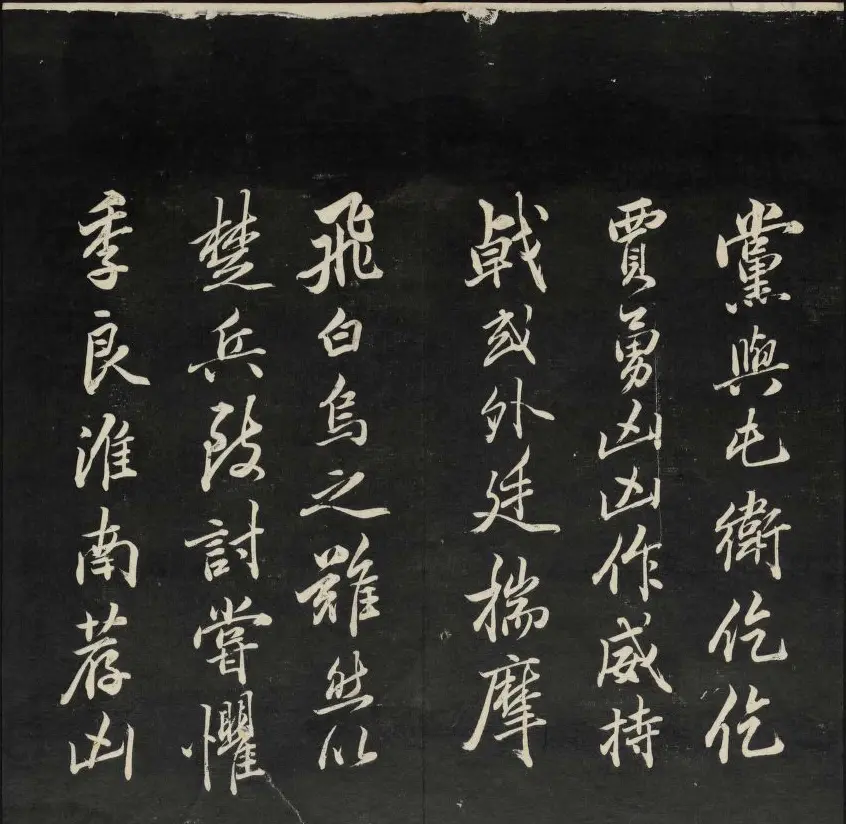 黨與屯衛仡仡
賈勇凶凶作威持
戟或外廷揣摩
飛白烏之難然以
楚兵致討嘗懼
季良淮南荐凶